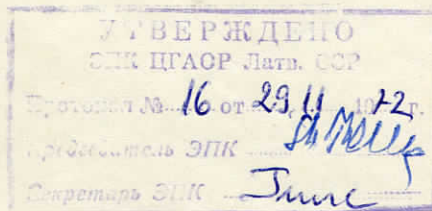 УТВЕРЖДЕНО
ЭПК ЦГАОР Латв. ССР
Протокол № 16 от 29 11 1972 г.
Председатель ЭПК
Секретарь ЭПК